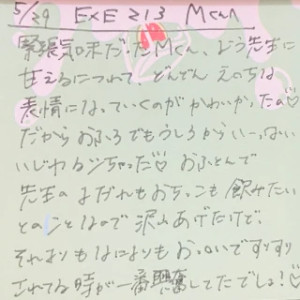 5/29 EXE213 Mくん
緊張気味だったMくん、よう先生に
甘えるにつれて、どんどんえっちな
表情になっていくのがかわいかったぁ♡
だからおふろでもうしろからいーっぱい
いじわるシちゃった♡ おふとんで
先生のよだれもおちっこも飲みたい
とのことなので沢山あげたけど、
それよりもなによりもお ですりすり
されてる時が一番興奮してたでしょ!♡